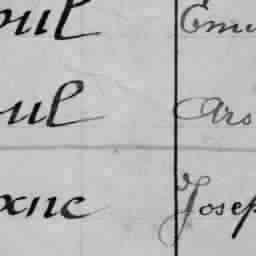 oul Em
oul Ars
anc Josep